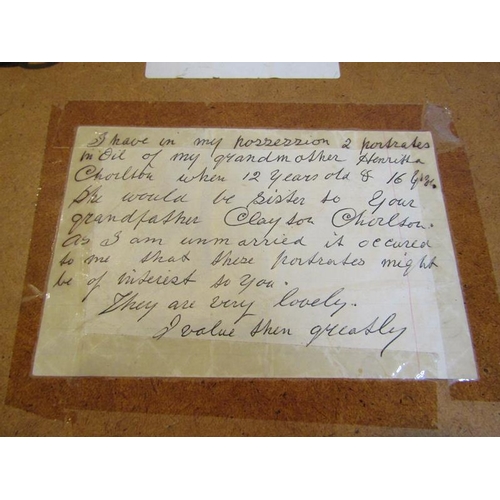 I have in my possession 2 portrates
in Oil of my grandmother Henritta
Chorlson when 12 years old & 16 yrs.
She would be sister to your
grandfather Clayson Chorlson.
As I am unmarried it occured
to me that these portrates might
be of interest to you.
They are very lovely.
I value then greatly